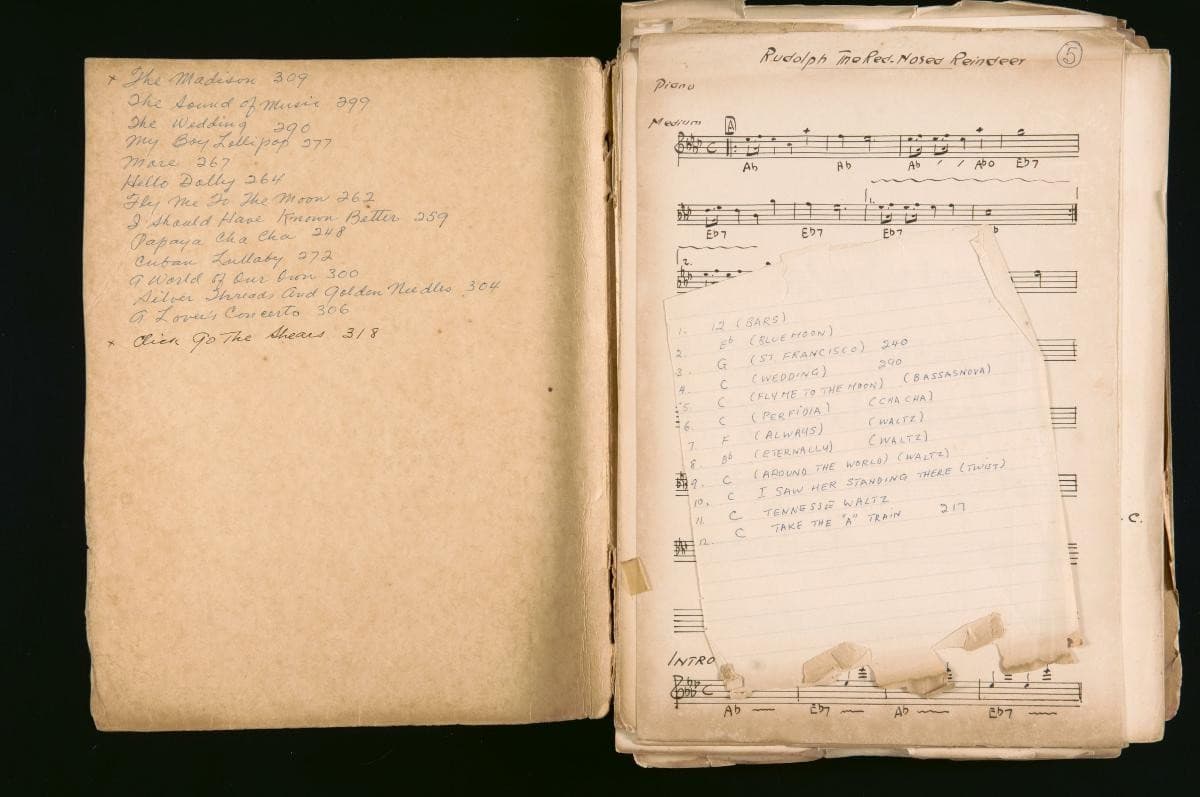 x The Madison 309
The Sound of Music 299
The Wedding 290
My Boy Lollipop 277
More 267
Hello Dolly 264
Fly Me To The Moon 262
I Should Have Known Better 259
Papaya Cha Cha 248
Cuban Lullaby 272
A World of Our Own 300
Silver Threads And Golden Needles 304
A Lover's Concerto 306
x Click Go The Shears 318
Rudolph The Red-Nosed Reindeer 5
Piano
Medium A
C
Ab Ab Ab / / Abo Eb7
1.
Eb7 Eb7 Eb7 b
2.
1. 12 (BARS)
2. Eb (BLUE MOON)
3. G (ST FRANCISCO) 240
4. C (WEDDING) 290
5. C (FLY ME TO THE MOON) (BASSASNOVA)
6. C (PERFIDIA) (CHA CHA)
7. F (ALWAYS) (WALTZ)
8. Bb (ETERNALLY) (WALTZ)
9. C (AROUND THE WORLD) (WALTZ)
10. C I SAW HER STANDING THERE (TWIST)
11. C TENNESSE WALTZ
12. C TAKE THE "A" TRAIN 217
C.
INTRO
C
Ab Eb7 Ab Eb7